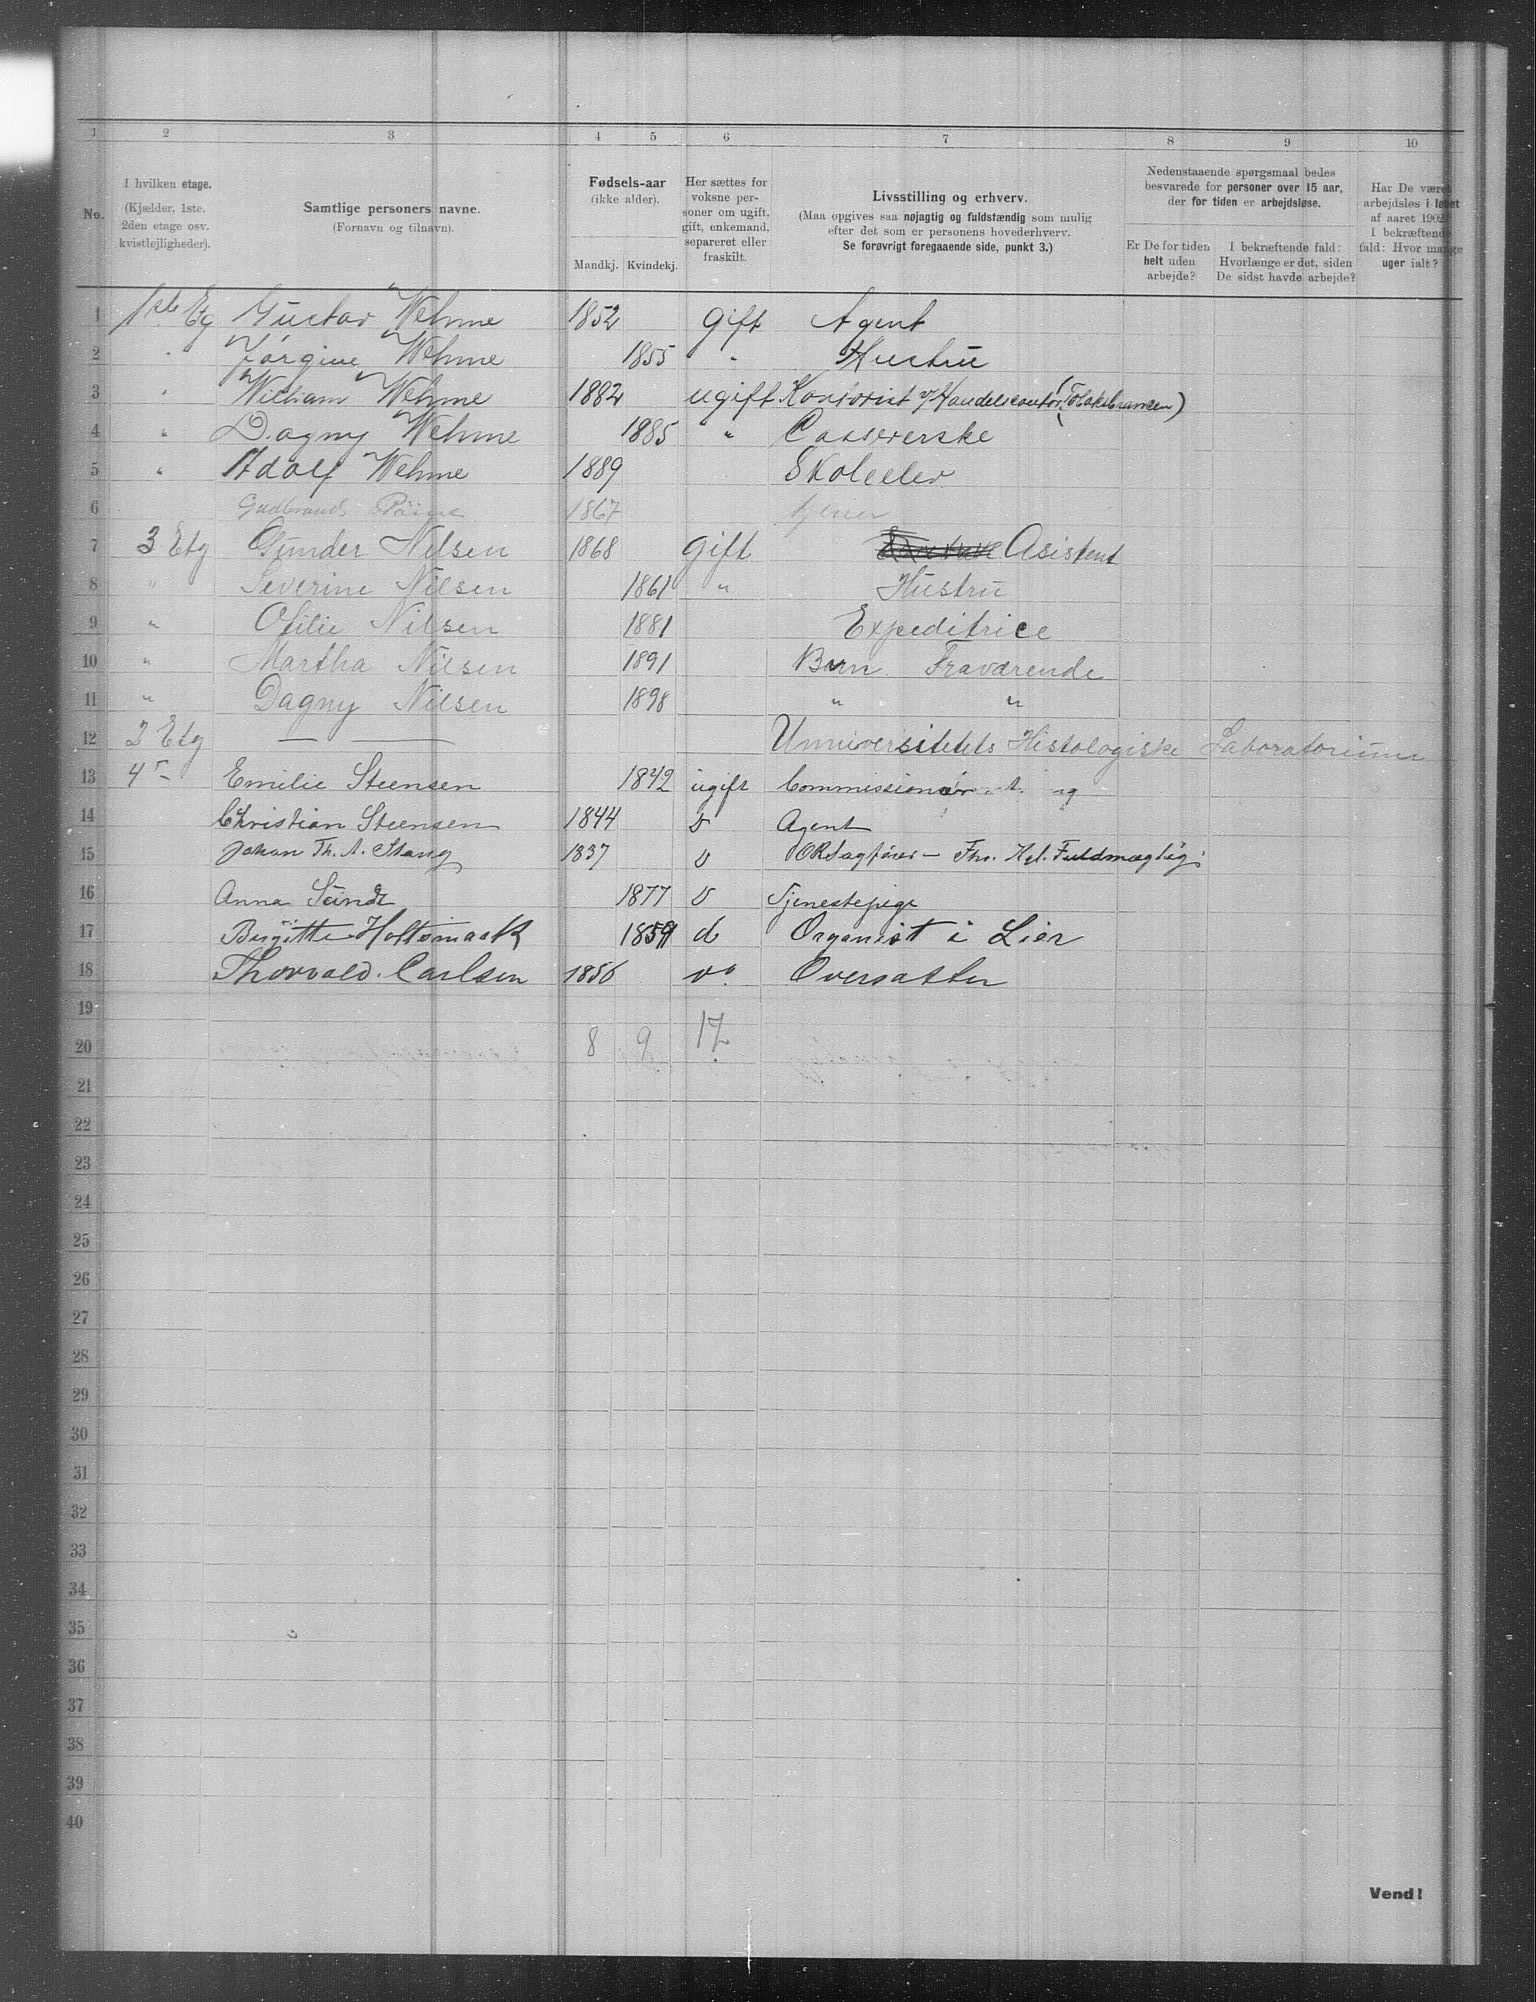 1 2 3 4 5 6 7 8 9 10
No.
I hvilken etage.
(Kjælder, 1ste.
2den etage osv.
kvistlejligheder).
Samtlige personers navne.
(Fornavn og tilnavn).
Fødsels-aar
(ikke alder).
Mandkj. Kvindekj.
Her sættes for
voksne per-
soner om ugift,
gift, enkemand,
separeret eller
fraskilt.
Livsstilling og erhverv.
(Maa opgives saa nøjagtig og fuldstændig som mulig
efter det som er personens hovederhverv.
Se forøvrigt foregaaende side, punkt 3.)
Nedenstaaende spørgsmaal bedes
besvarede for personer over 15 aar,
der for tiden er arbejdsløse.
Er De for tiden
helt uden
arbejde?
I bekræftende fald:
Hvorlænge er det, siden
De sidst havde arbejde?
Har De været
arbejdsløs i løbet
af aaret 1902?
I bekræftende
fald: Hvor mange
uger ialt?
1 1ste Etg Gustav Wehme 1852 gift Agent
2 " Jørgine Wehme 1855 " Hustru
3 " William Wehme 1882 ugift Kontorist v/ Handelscontor (Tobaksbransen)
4 " Dagny Wehme 1885 " Cassererske
5 " Adolf Wehme 1889 Skoleelev
6 Gudbrand 1867 tjener
7 3 Etg Gunder Nilsen 1868 Gift Asistent
8 " Severine Nilsen 1861 " Hustru
9 " Ofilie Nilsen 1881 Expeditrice
10 " Martha Nilsen 1891 Barn Fraværende
11 " Dagny Nilsen 1898 " "
12 2 Etg — — Unniversitetets Histologiske Laboratorium
13 4 Emilie Steensen 1842 ugift
14 Christian Steensen 1844 Agent
15 Johan Th. A. Stang 1837 ORSagfører — Fhv. Kgl. Fuldmægtig
16 Anna Sunde 1877 Tjenestepige
17 Birgitte Holtsmark 1859 d Organist i Lier
18 Thorvald Carlsen 1856 do Oversætter
19
20 8 9 17
21
22
23
24
25
26
27
28
29
30
31
32
33
34
35
36
37
38
39
40
Vend!